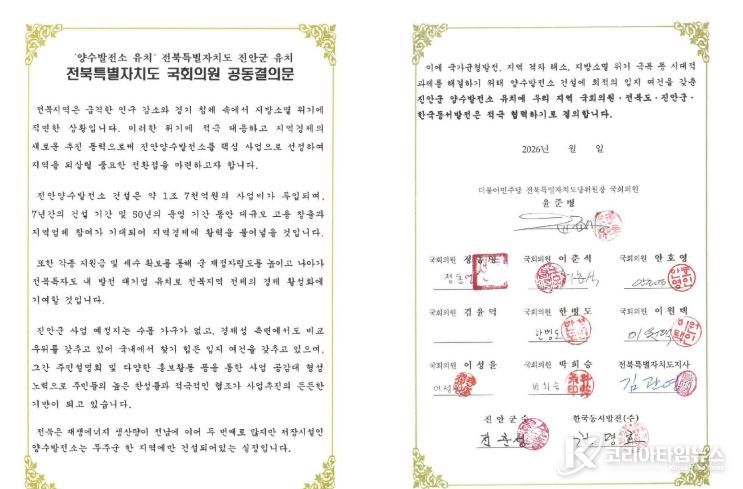 '양수발전소 유치' 전북특별자치도 진안군 유치
전북특별자치도 국회의원 공동결의문
전북지역은 급격한 인구 감소와 경기 침체 속에서 지방소멸 위기에
직면한 상황입니다. 이러한 위기에 적극 대응하고 지역경제의
새로운 추진 동력으로써 진안양수발전소를 핵심 사업으로 선정하여
지역을 되살릴 중요한 전환점을 마련하고자 합니다.
진안양수발전소 건설은 약 1조 7천억원의 사업비가 투입되며,
7년간의 건설 기간 및 50년의 운영 기간 동안 대규모 고용 창출과
지역업체 참여가 기대되어 지역경제에 활력을 불어넣을 것입니다.
또한 각종 지원금 및 세수 확보를 통해 군 재정자립도를 높이고 나아가
전북특자도 내 발전 대기업 유치로 전북지역 전체의 경제 활성화에
기여할 것입니다.
진안군 사업 예정지는 수몰 가구가 없고, 경제성 측면에서도 비교
우위를 갖추고 있어 국내에서 찾기 힘든 입지 여건을 갖추고 있으며,
그간 주민설명회 및 다양한 홍보활동 등을 통한 사업 공감대 형성
노력으로 주민들의 높은 찬성률과 적극적인 협조가 사업추진의 든든한
기반이 되고 있습니다.
전북은 재생에너지 생산량이 전남에 이어 두 번째로 많지만 저장시설인
양수발전소는 무주군 한 지역에만 건설되어있는 실정입니다.
이에 국가균형발전, 지역 격차 해소, 지방소멸 위기 극복 등 시대적
과제를 해결하기 위해 양수발전소 건설에 최적의 입지 여건을 갖춘
진안군 양수발전소 유치에 우리 지역 국회의원·전북도·진안군·
한국동서발전은 적극 협력하기로 결의합니다.
2026년 월 일
더불어민주당 전북특별자치도당위원장 국회의원
윤준병
국회의원 정동영 국회의원 이춘석 국회의원 안호영
정동영
국회의원 김윤덕 국회의원 한병도 국회의원 이원택
한병도 이원택
국회의원 이성윤 국회의원 박희승 전북특별자치도지사
김관영
진안군수 한국동서발전(주)
전춘성
코리아타임뉴스